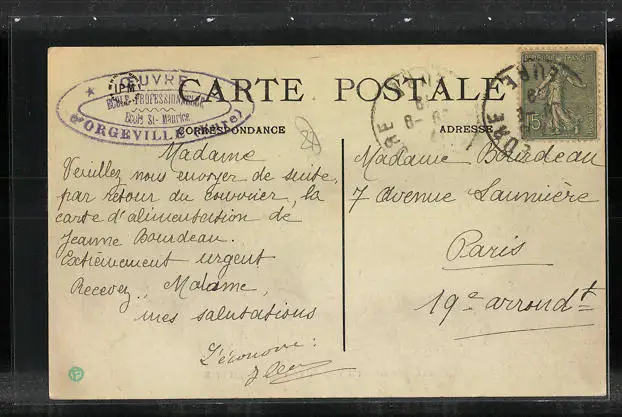 CARTE POSTALE
ŒUVRE
ÉCOLE PROFESSIONNELLE
École St-Maurice
d'ORGEVILLE (Eure)
CORRESPONDANCE
Madame
Veuillez nous envoyer de suite,
par retour du courrier, la
carte d'alimentation de
Jeanne Bourdeau.
Extrêmement urgent
Recevez, Madame,
mes salutations
L'économe :
ADRESSE
Madame Bourdeau
7 avenue Laumière
Paris
19e arrondt
EURE
15c